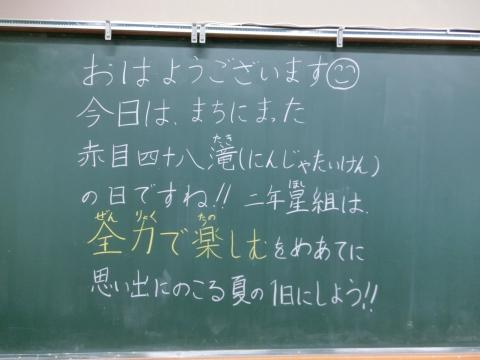 おはようございます
今日は、まちにまった
赤目四十八滝(にんじゃたいけん)
の日ですね!! 二年星組は、
全力で楽しむをめあてに
思い出にのこる夏の1日にしよう!!